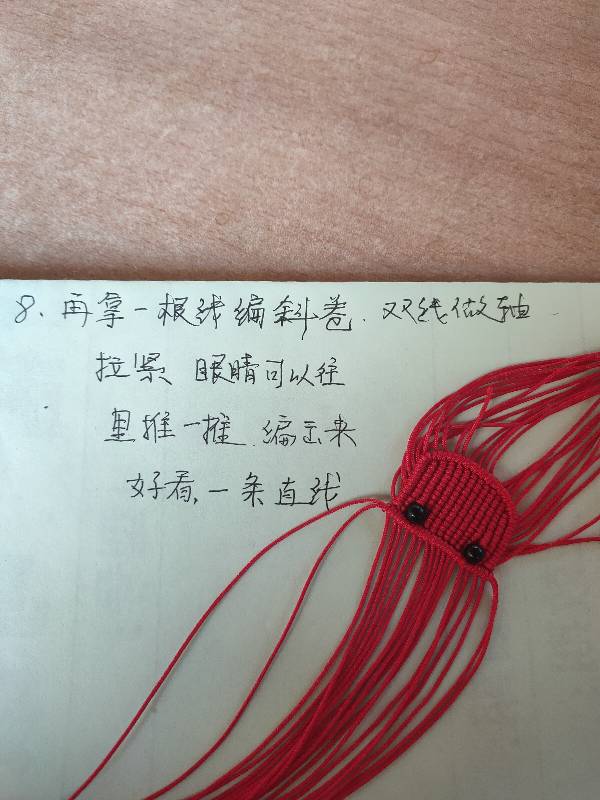 8、再拿一根线编斜卷.双线做轴
拉紧 眼睛可以往
里推一推.编出来
好看,一条直线